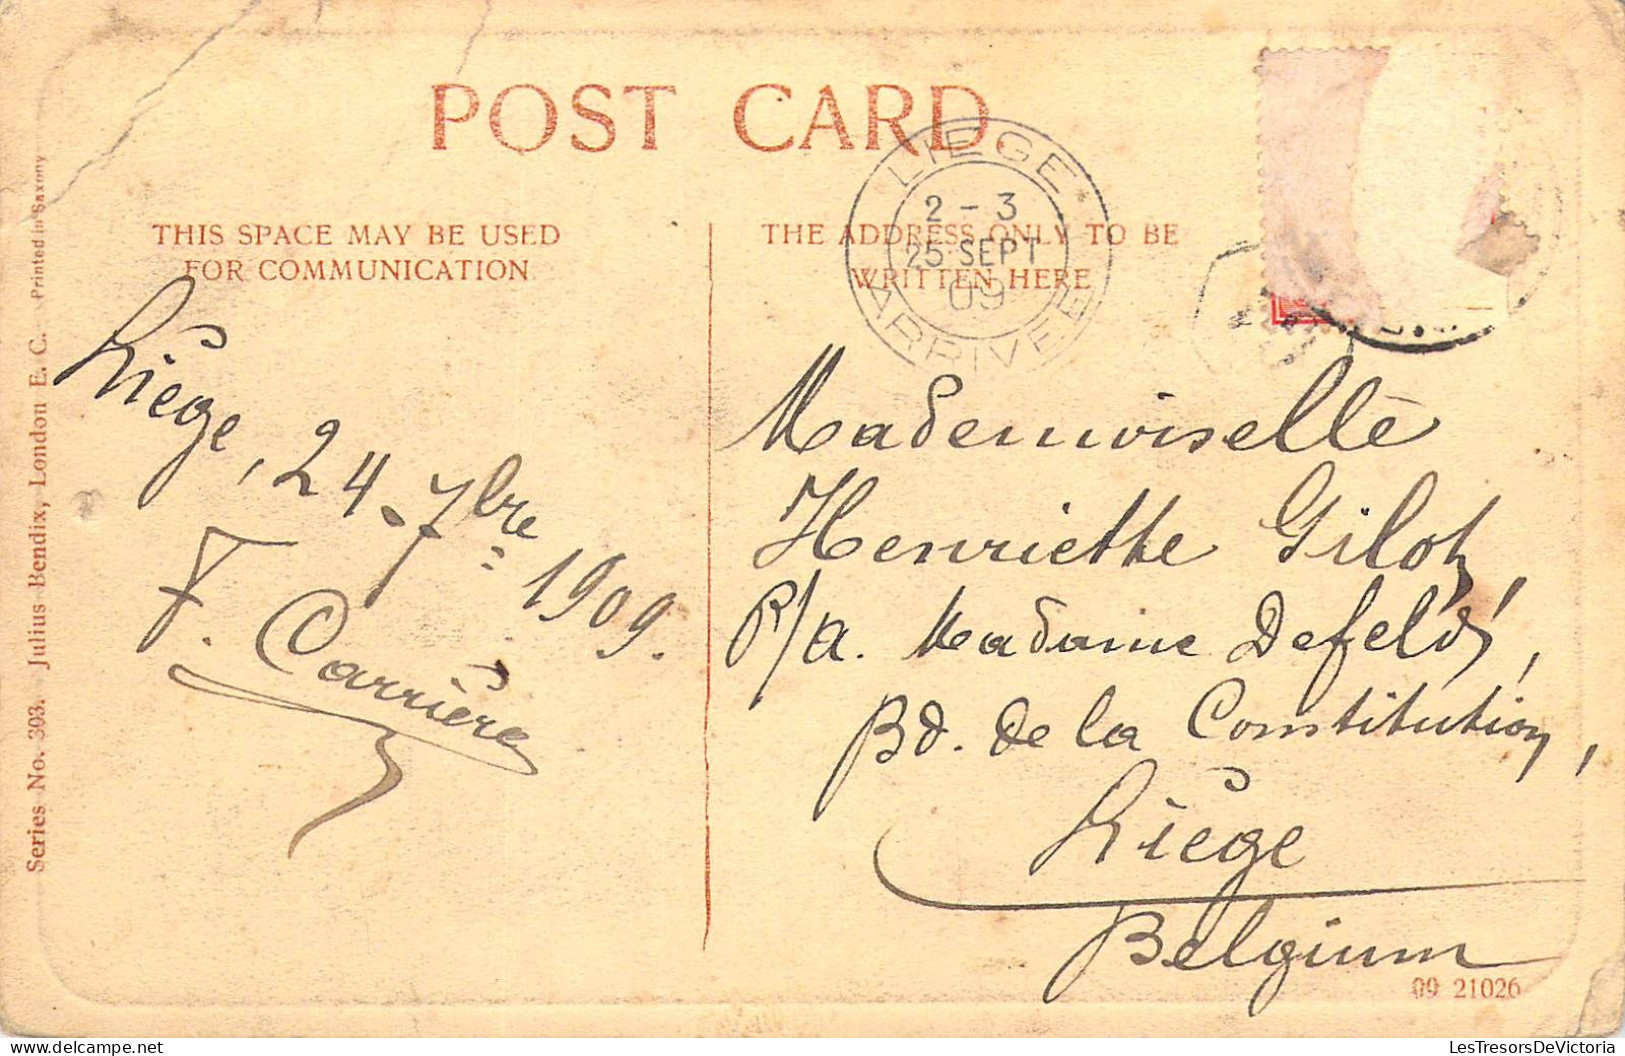 POST CARD
LIEGE
2 - 3
25 SEPT
09
ARRIVEE
THIS SPACE MAY BE USED
FOR COMMUNICATION
THE ADDRESS ONLY TO BE
WRITTEN HERE
Liège, 24-7bre 1909.
F. Carrière
Mademoiselle
Henriette Gilot,
P/a. Madame
Bd. de la Constitution,
Liège
Belgium
09 21026
Series No. 303. Julius Bendix, London E. C. Printed in Saxony
LesTresorsDeVictoria